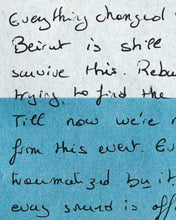 Everything changed
Beirut is still
survive this. Rebu
trying to find the
Till now we're n
from this event. Ev
traumatized by it.
every sound is off